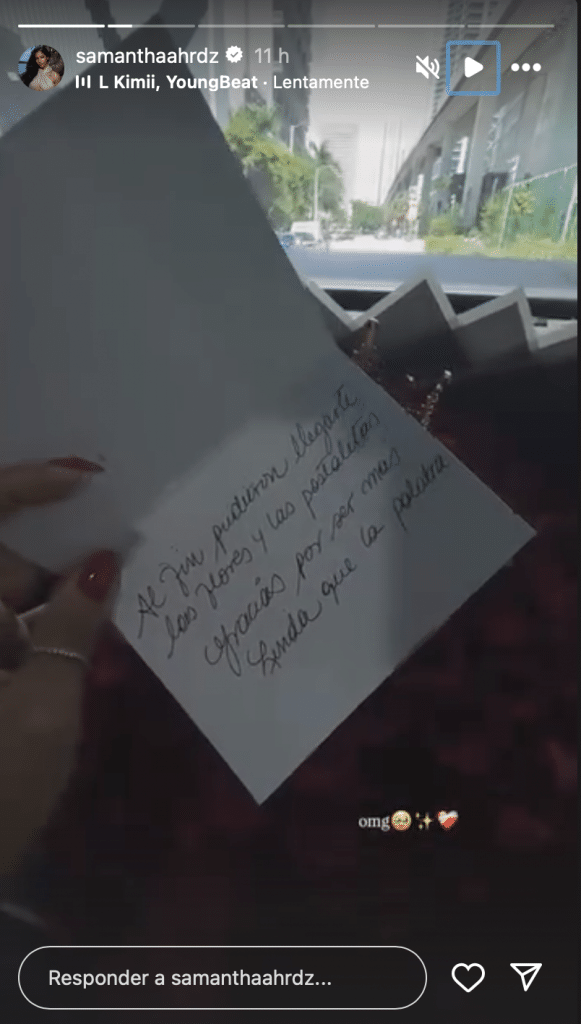 samanthaahrdz 11 h
L Kimii, YoungBeat · Lentamente
Al fin pudieron llegarte
las flores y las postalitas
Gracias por ser mas
Linda que la palabra
omg🥹✨❤️‍🩹
Responder a samanthaahrdz...